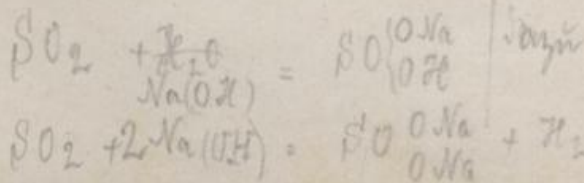 SO2 + H2O Na(OH) = SO{ONa OH
SO2 + 2Na(OH) = SO ONa ONa + H2